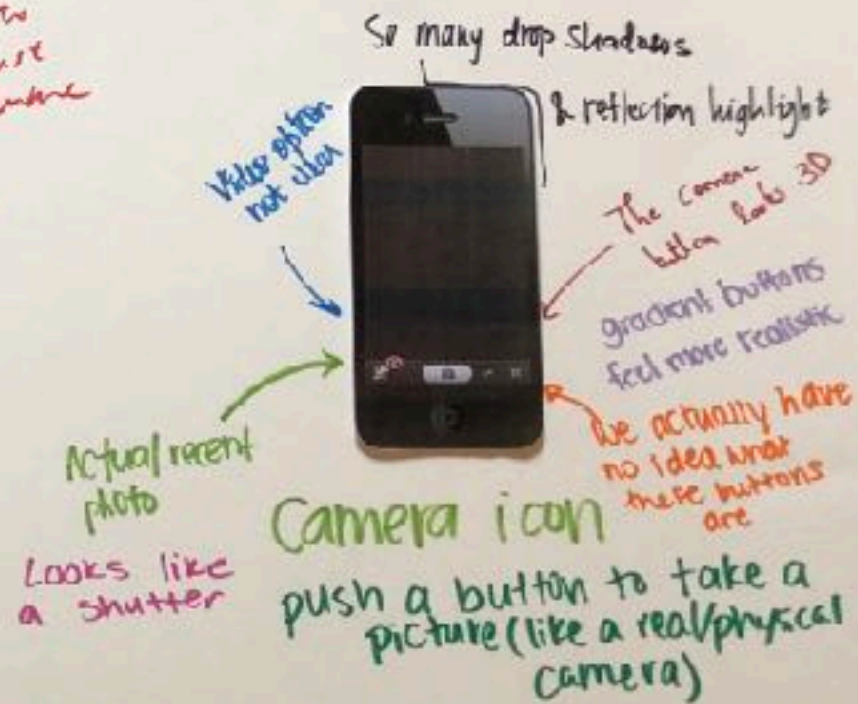 So many drop shadows
& reflection highlight
Video option
not clear
The camera
button looks 3D
gradient buttons
feel more realistic
We actually have
no idea what
these buttons
are
Actual recent
photo
Camera icon
Looks like
a shutter
push a button to take a
picture (like a real/physical
camera)